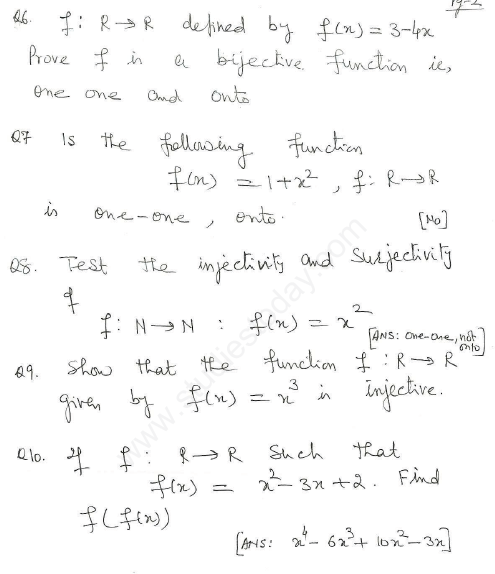 Pg-2
Q6. f: R→R defined by f(x) = 3-4x
Prove f is a bijective function ie,
one one and onto
Q7 Is the following function
f(x) = 1+x², f: R→R
is one-one, onto. [No]
Q8. Test the injectivity and surjectivity
of
f: N→N : f(x) = x²
[ANS: one-one, not onto]
Q9. Show that the function f: R→R
given by f(x) = x³ is injective.
Q10. If f: R→R Such that
f(x) = x²-3x+2. Find
f(f(x))
[ANS: x⁴-6x³+10x²-3x]
www.studiestoday.com